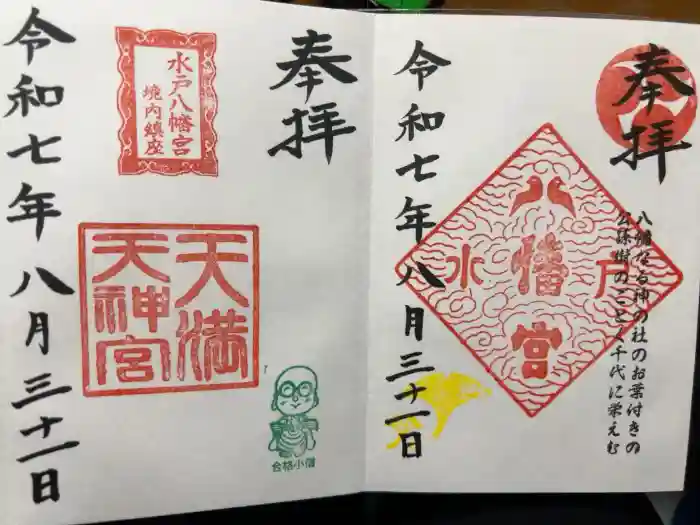 奉拝
八幡宮
水戸
八幡なる神の社のお葉付きの
公孫樹のごとく千代に栄えむ
令和七年八月三十一日
奉拝
水戸八幡宮
境内鎮座
天満
天神宮
合格小僧
令和七年八月三十一日